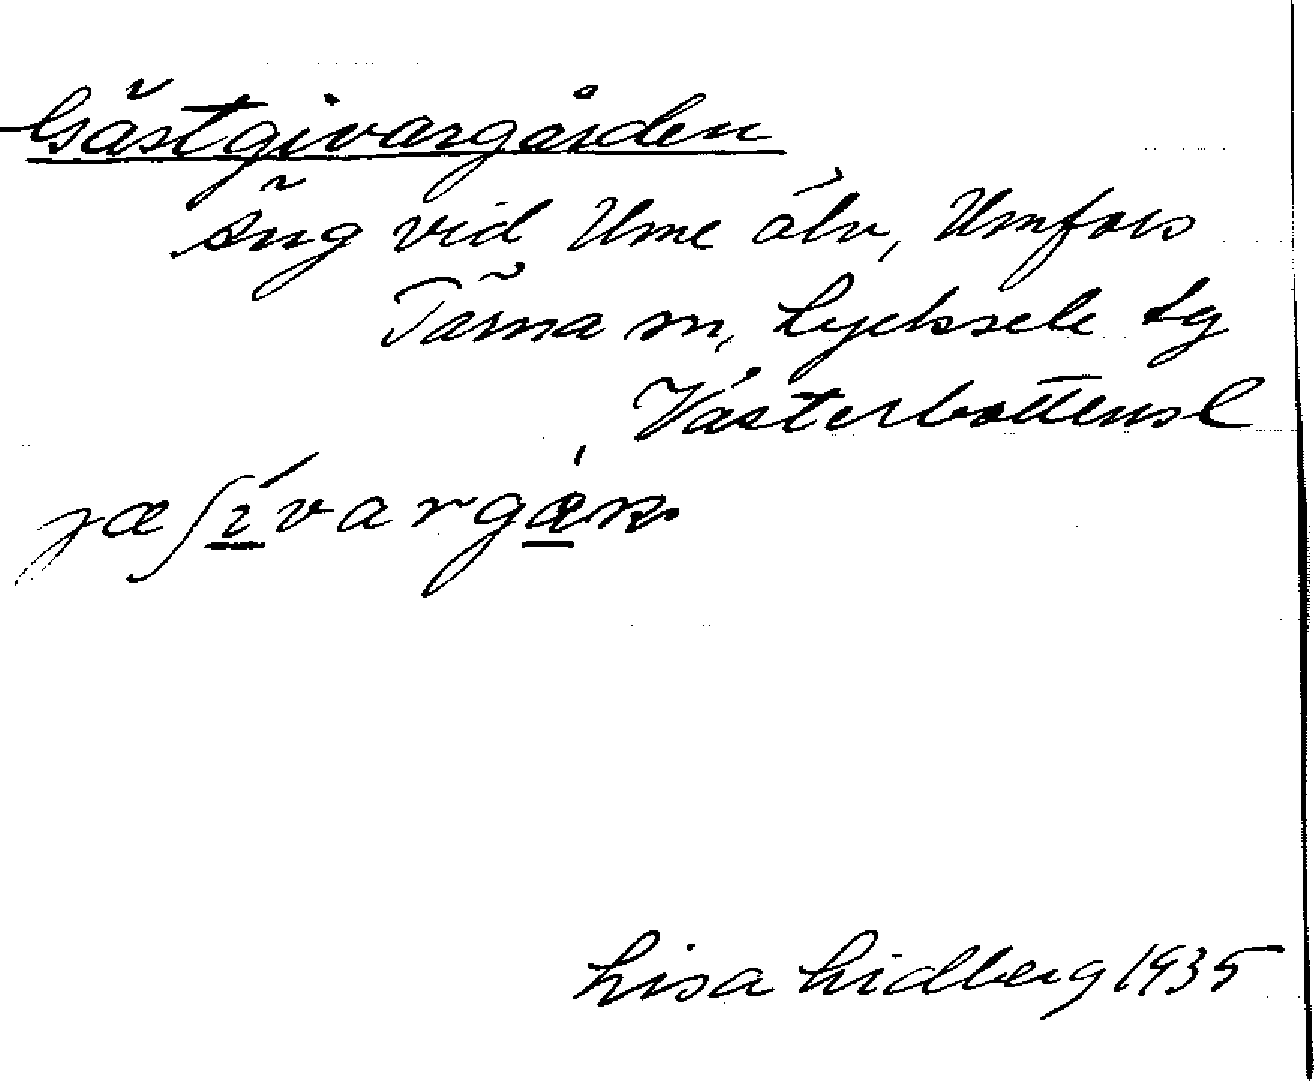 Gästgivargården
äng vid Ume älv, Umfors
Tärna sn, Lycksele lg
Västerbottensl
jæʃívargán
Lisa Lidberg 1935